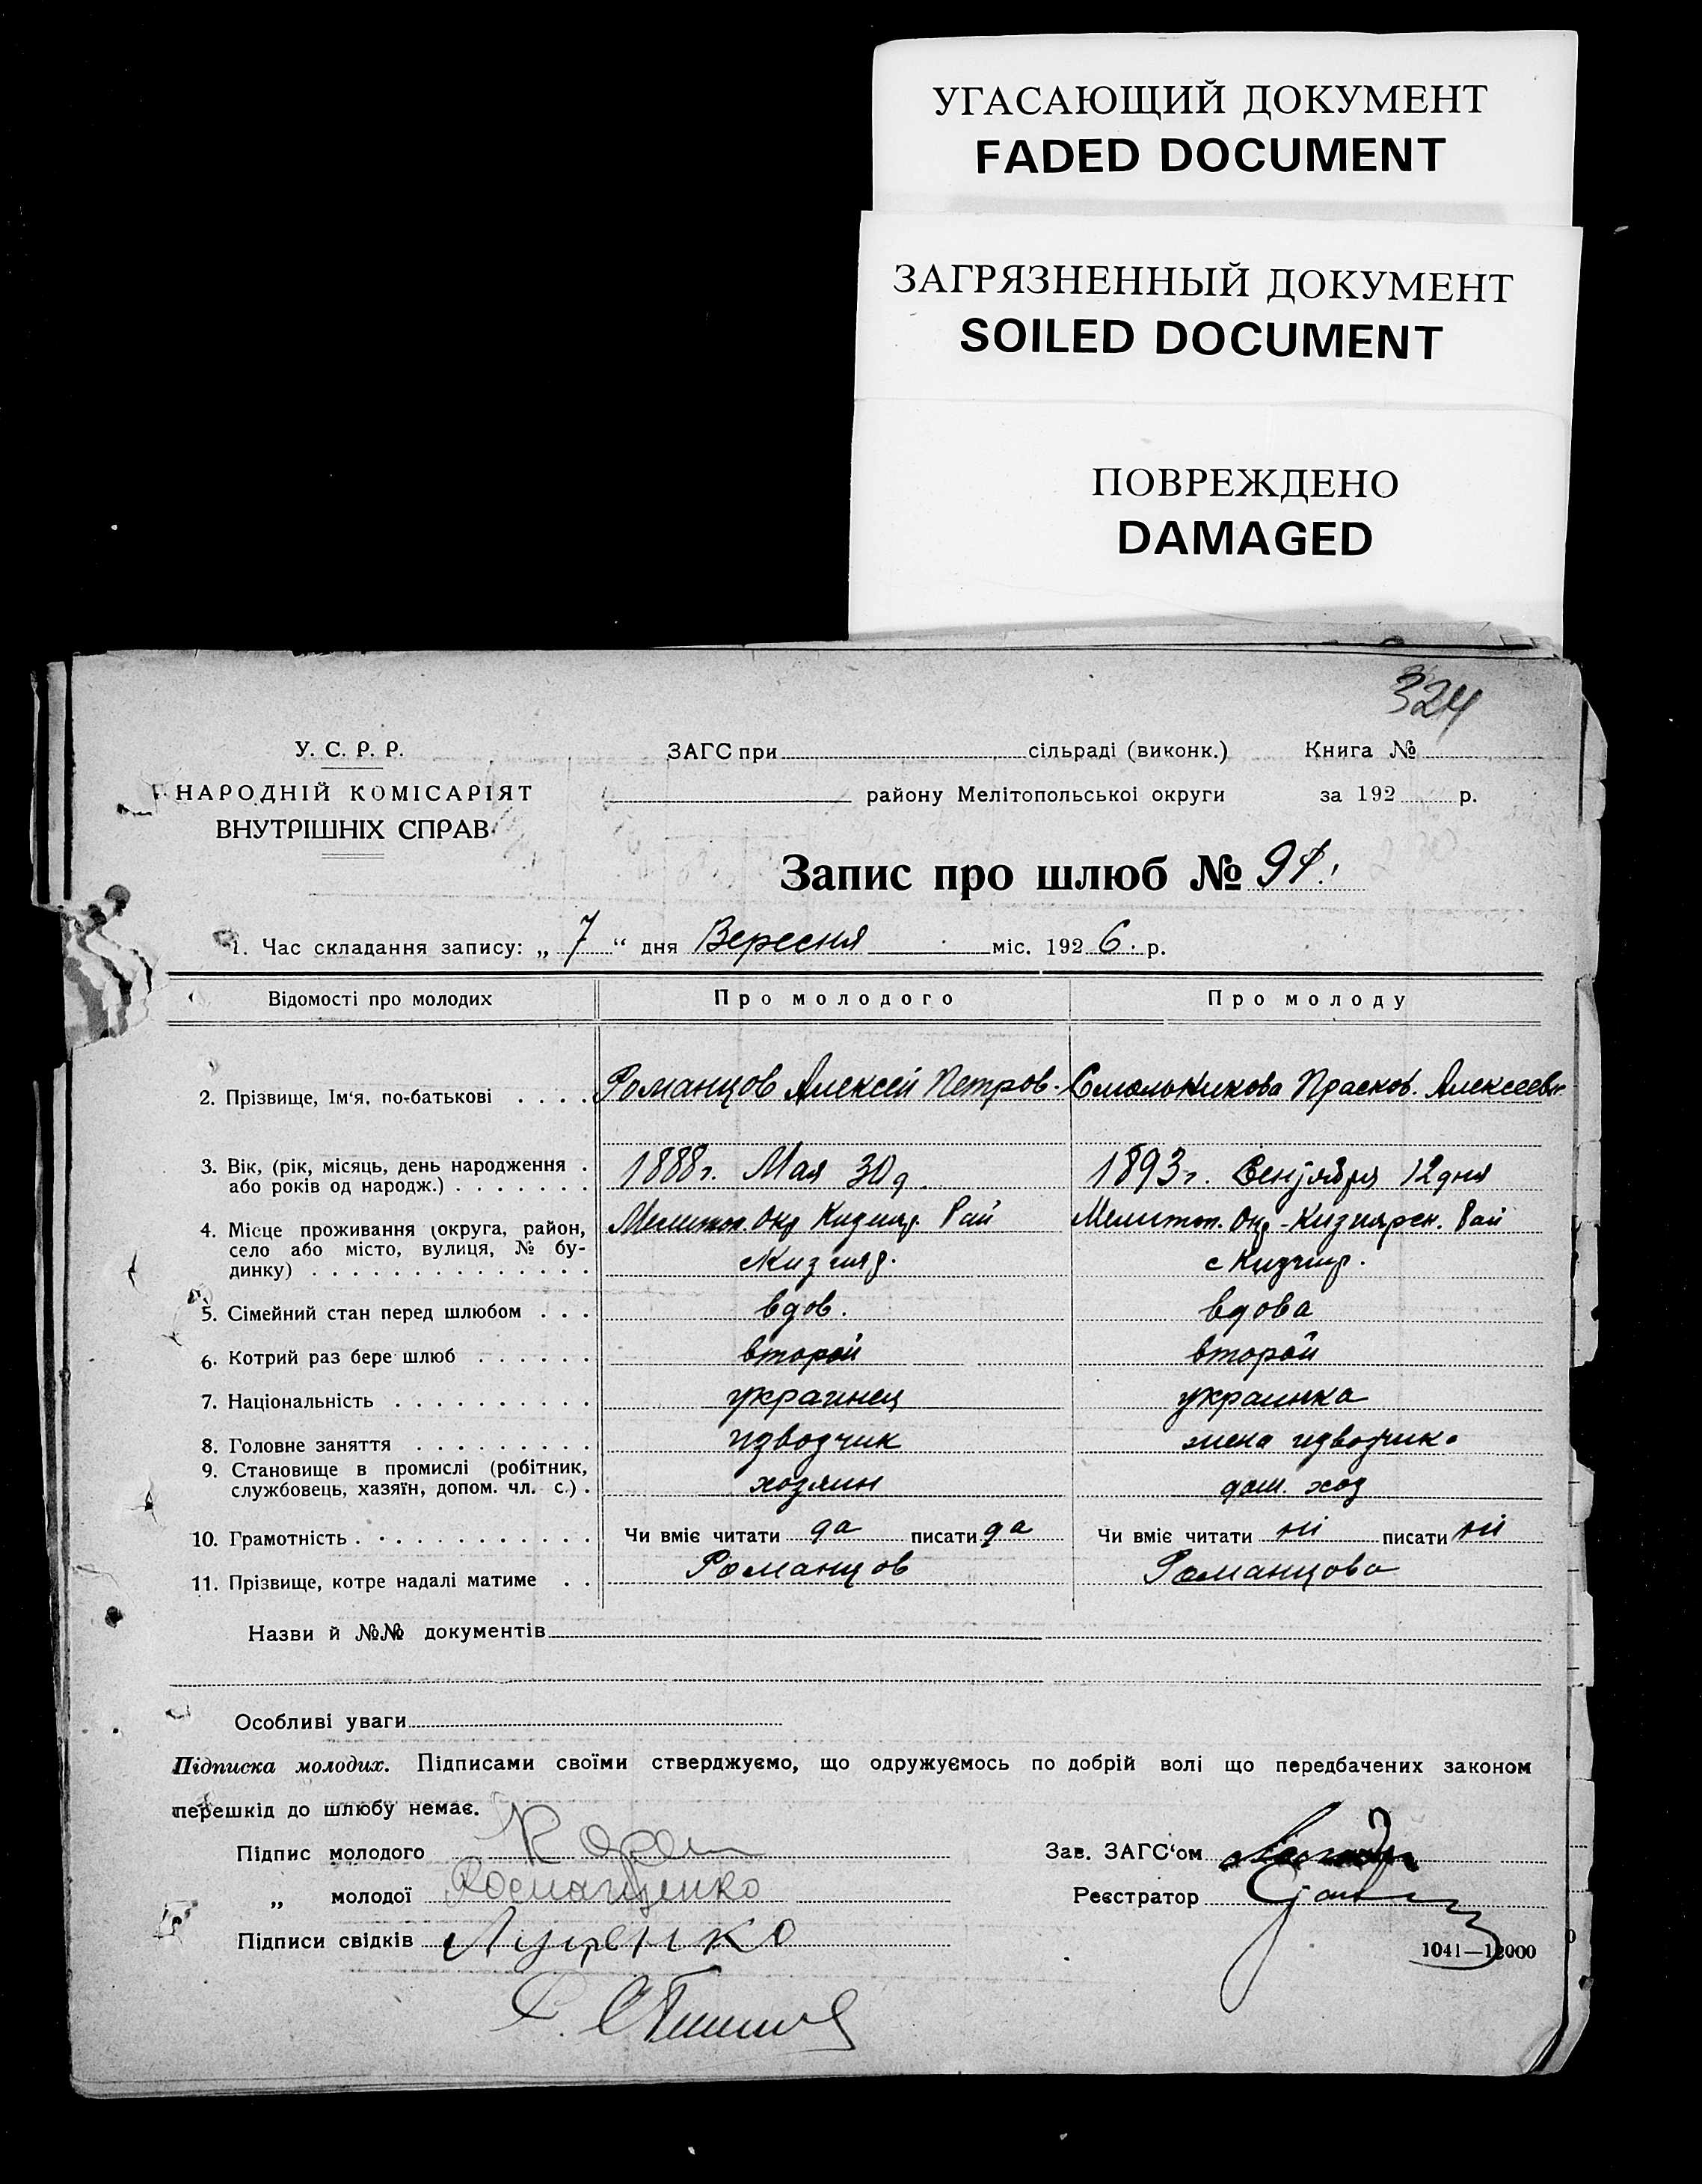 УГАСАЮЩИЙ ДОКУМЕНТ
FADED DOCUMENT
ЗАГРЯЗНЕННЫЙ ДОКУМЕНТ
SOILED DOCUMENT
ПОВРЕЖДЕНО
DAMAGED
324
У. С. Р. Р.
НАРОДНІЙ КОМІСАРІЯТ
ВНУТРІШНІХ СПРАВ
ЗАГС при сільраді (виконк.) Книга №
району Мелітопольської округи за 192 р.
Запис про шлюб №
1. Час складання запису: „ 7 “ дня Вересня міс. 1926. р.
Відомості про молодих Про молодого Про молоду
2. Прізвище, Ім‘я, по-батькові . . . . Романцов Алексей Петров. Смольникова Прасков. Алексеевн.
3. Вік, (рік, місяць, день народження . або років од народж.) . . . . . . . 1888г. Мая 30д. 1893г. Сентября 12 дня
4. Місце проживання (округа, район, Мелитоп. Окр Кизияр. Рай Мелитоп. Окр-Кизиярск. Рай
село або місто, вулиця, № бу-
динку) . . . . . . . . . . . . . . с Кизияр. с Кизияр.
5. Сімейний стан перед шлюбом . . . вдов. вдова
6. Котрий раз бере шлюб . . . . . . второй второй
7. Національність . . . . . . . . . . украинец украинка
8. Головне заняття . . . . . . . . . извозчик жена извозчика
9. Становище в промислі (робітник,
службовець, хазяїн, допом. чл. с.) . хозяин дом. хоз
10. Грамотність . . . . . . . . . . . Чи вміє читати да писати да Чи вміє читати ні писати ні
11. Прізвище, котре надалі матиме . . Романцов Романцова
Назви й №№ документів
Особливі уваги
Підписка молодих. Підписами своїми стверджуємо, що одружуємось по добрій волі що передбачених законом
перешкід до шлюбу немає.
Підпис молодого Зав. ЗАГС‘ом
„ молодої Реєстратор
Підписи свідків
1041—12000